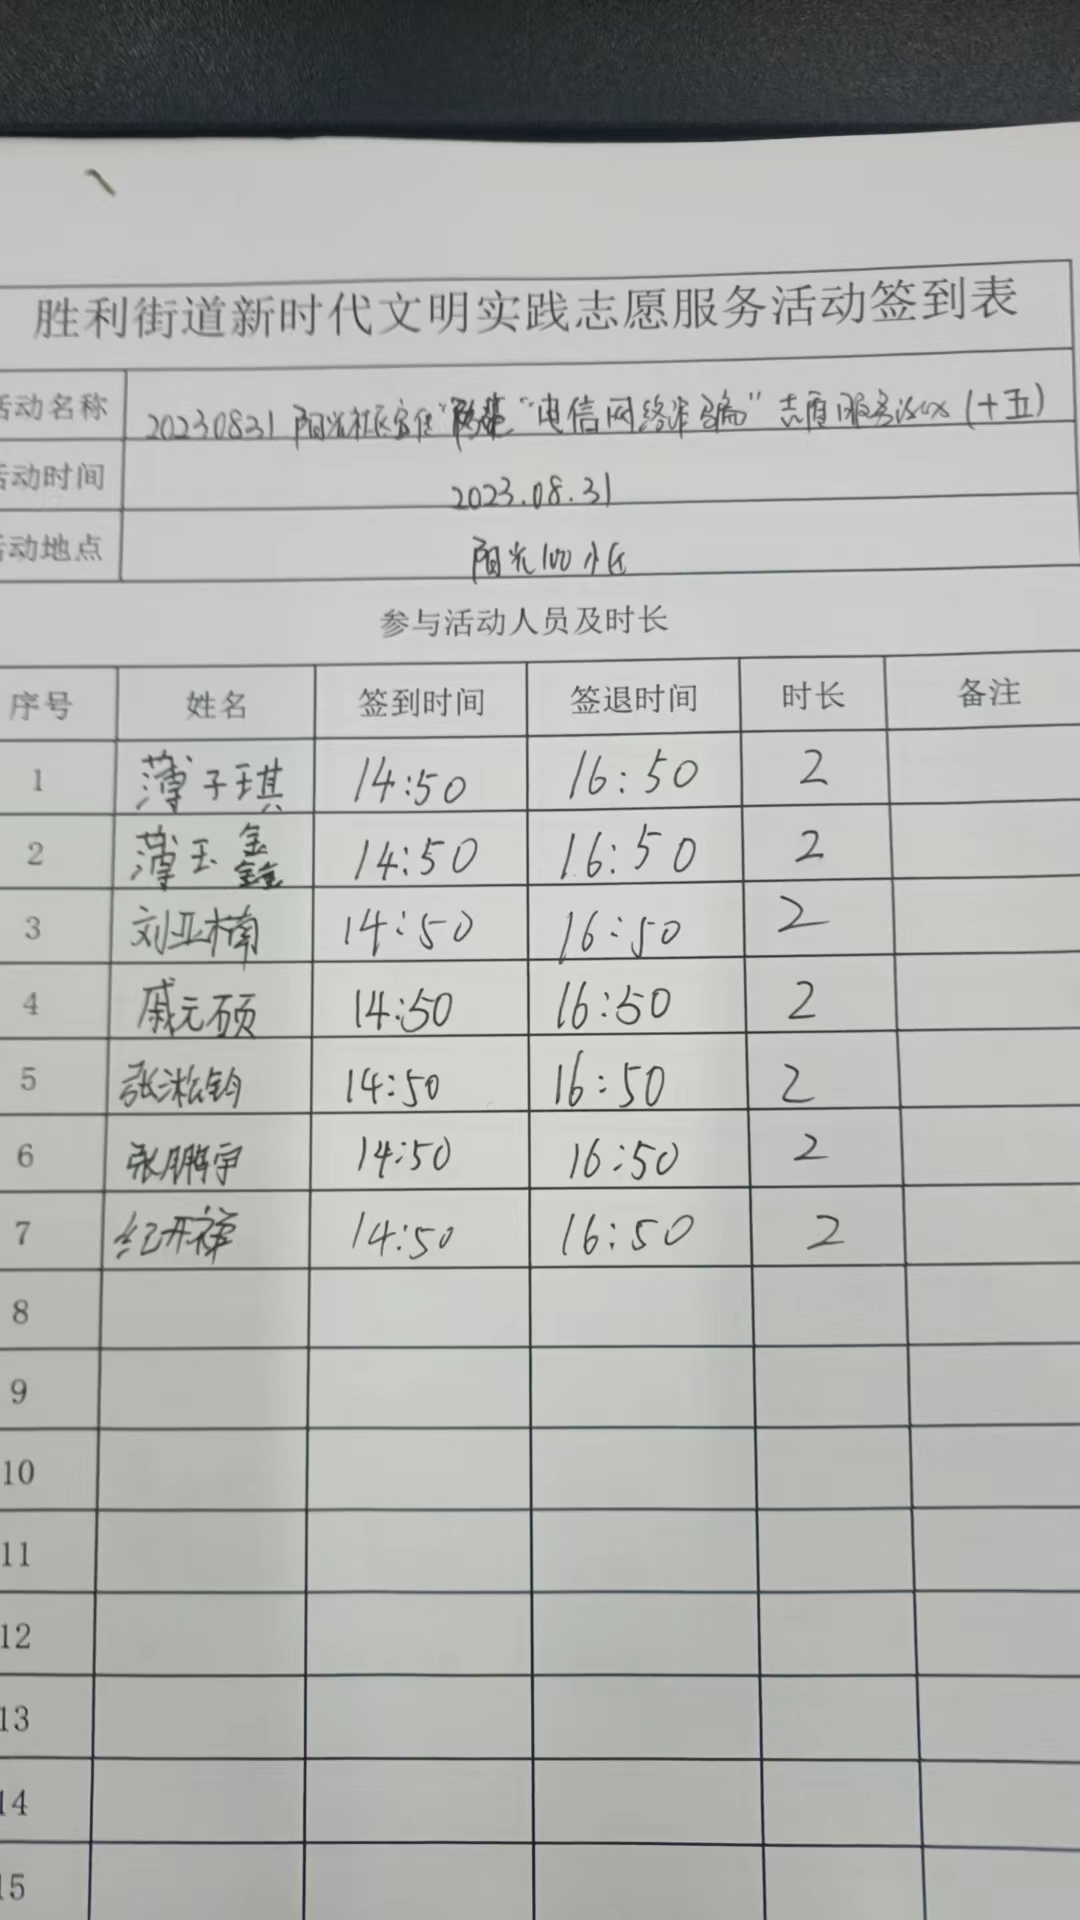 胜利街道新时代文明实践志愿服务活动签到表
活动名称 20230831 阳光社区宣传“防范“电信网络诈骗”志愿服务活动（十五）
活动时间 2023.08.31
活动地点 阳光100小区
参与活动人员及时长
序号 姓名 签到时间 签退时间 时长 备注
1 薄子琪 14:50 16:50 2
2 薄玉鑫 14:50 16:50 2
3 刘亚楠 14:50 16:50 2
4 戚元硕 14:50 16:50 2
5 张淞钧 14:50 16:50 2
6 张鹏宇 14:50 16:50 2
7 纪开祥 14:50 16:50 2
8
9
10
11
12
13
14
15